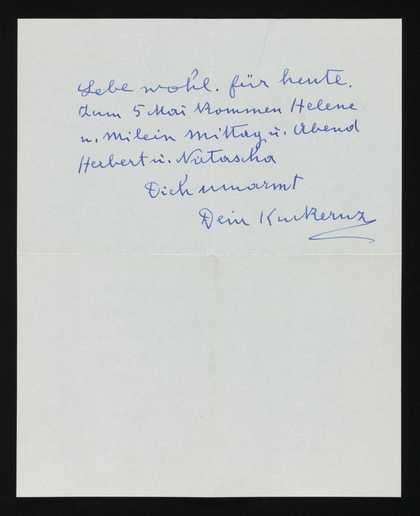 Lebe wohl. für heute.
Zum 5 Mai kommen Helene
u. Milein Mittag u. Abend
Herbert u. Natascha
Dich umarmt
Dein Kuckernz